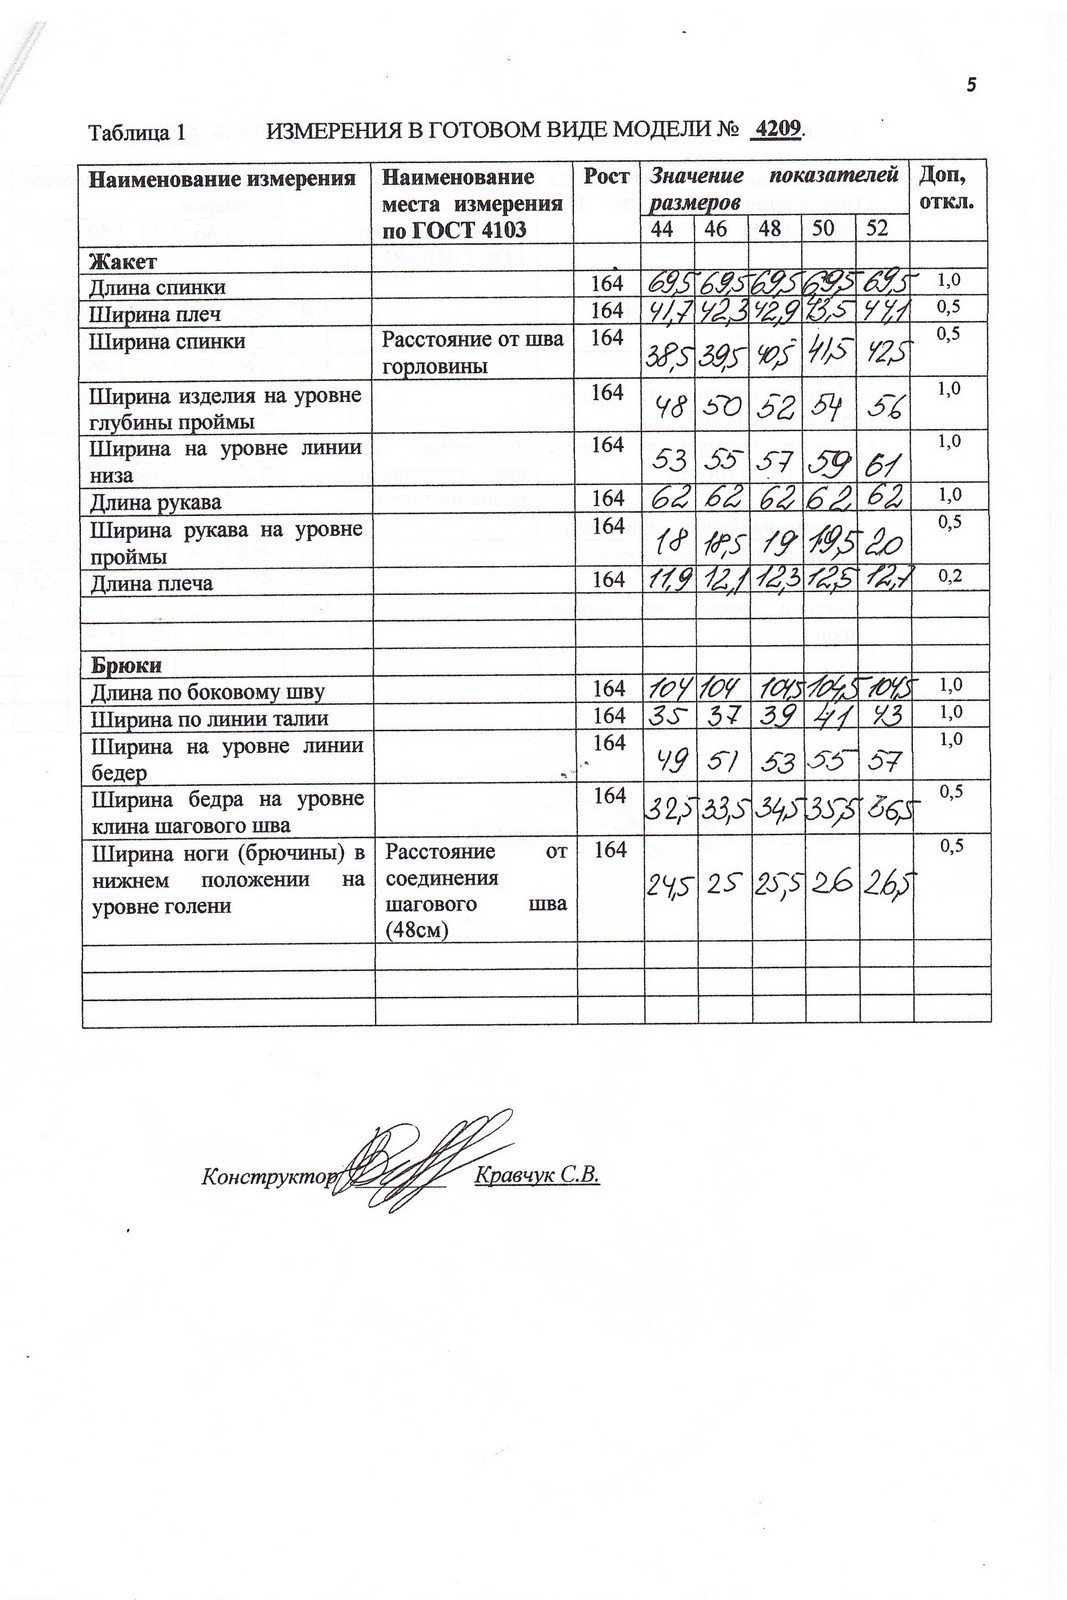 5
Таблица 1 ИЗМЕРЕНИЯ В ГОТОВОМ ВИДЕ МОДЕЛИ № 4209.
Наименование измерения Наименование места измерения по ГОСТ 4103 Рост Значение показателей размеров Доп, откл.
44 46 48 50 52
Жакет
Длина спинки 164 69,5 69,5 69,5 69,5 69,5 1,0
Ширина плеч 164 41,7 42,3 42,9 43,5 44,1 0,5
Ширина спинки Расстояние от шва горловины 164 38,5 39,5 40,5 41,5 42,5 0,5
Ширина изделия на уровне глубины проймы 164 48 50 52 54 56 1,0
Ширина на уровне линии низа 164 53 55 57 59 61 1,0
Длина рукава 164 62 62 62 62 62 1,0
Ширина рукава на уровне проймы 164 18 18,5 19 19,5 20 0,5
Длина плеча 164 11,9 12,1 12,3 12,5 12,7 0,2
Брюки
Длина по боковому шву 164 104 104 104,5 104,5 104,5 1,0
Ширина по линии талии 164 35 37 39 41 43 1,0
Ширина на уровне линии бедер 164 49 51 53 55 57 1,0
Ширина бедра на уровне клина шагового шва 164 32,5 33,5 34,5 35,5 36,5 0,5
Ширина ноги (брючины) в нижнем положении на уровне голени Расстояние от соединения шагового шва (48см) 164 24,5 25 25,5 26 26,5 0,5
Конструктор Кравчук С.В.